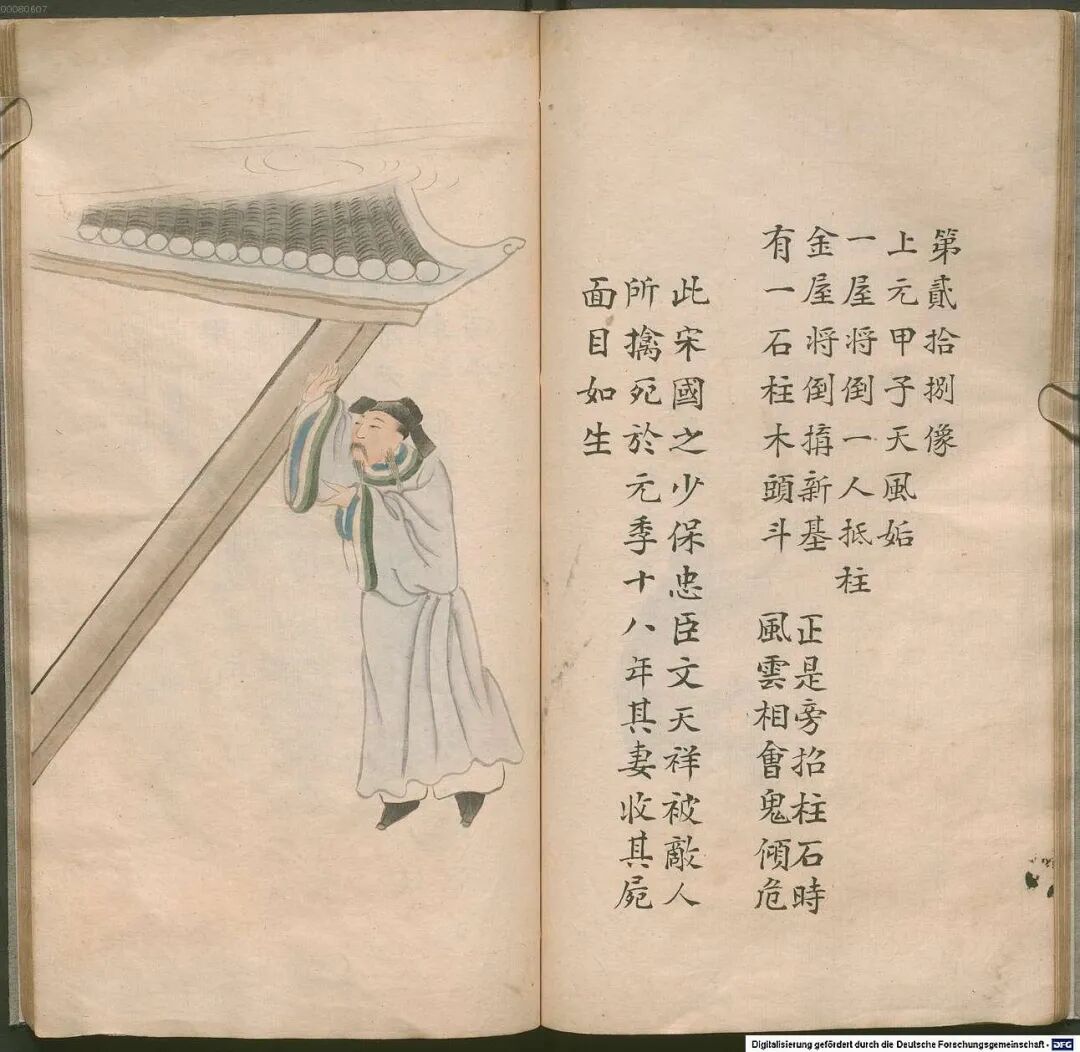 00080607
第貳拾捌像
上元甲子天風姤
一屋將倒一人抵柱
金屋將倒搆新基 正是旁招柱石時
有一石柱木頭斗 風雲相會鬼傾危
此宋國之少保忠臣文天祥被敵人
所擒死於元季十八年其妻收其屍
面目如生
Digitalisierung gefördert durch die Deutsche Forschungsgemeinschaft - DFG